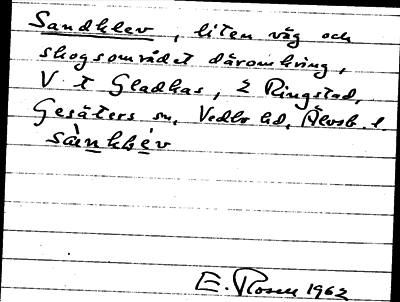 Sandklev, liten väg och
skogsområdet däromkring,
V t Gladkas, 2 Ringstad,
Gesäters sn, Vedbo hd, Älvsb. l.
sànkbév
E. Rosell 1962